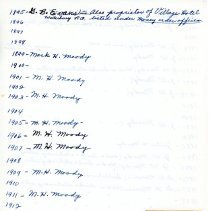 1895 - G. B. Evans - Also proprietor of Village Hotel
1896 Waitsburg listed under Money order offices
1897
1898
1899 - Mark H. Moody
1900 -
1901 - M. H. Moody
1902
1903 - M. H. Moody
1904
1905 - M. H. Moody -
1906 - M. H. Moody
1907 - M. H. Moody
1908
1909 - M. H. Moody
1910
1911 - M. H. Moody
1912